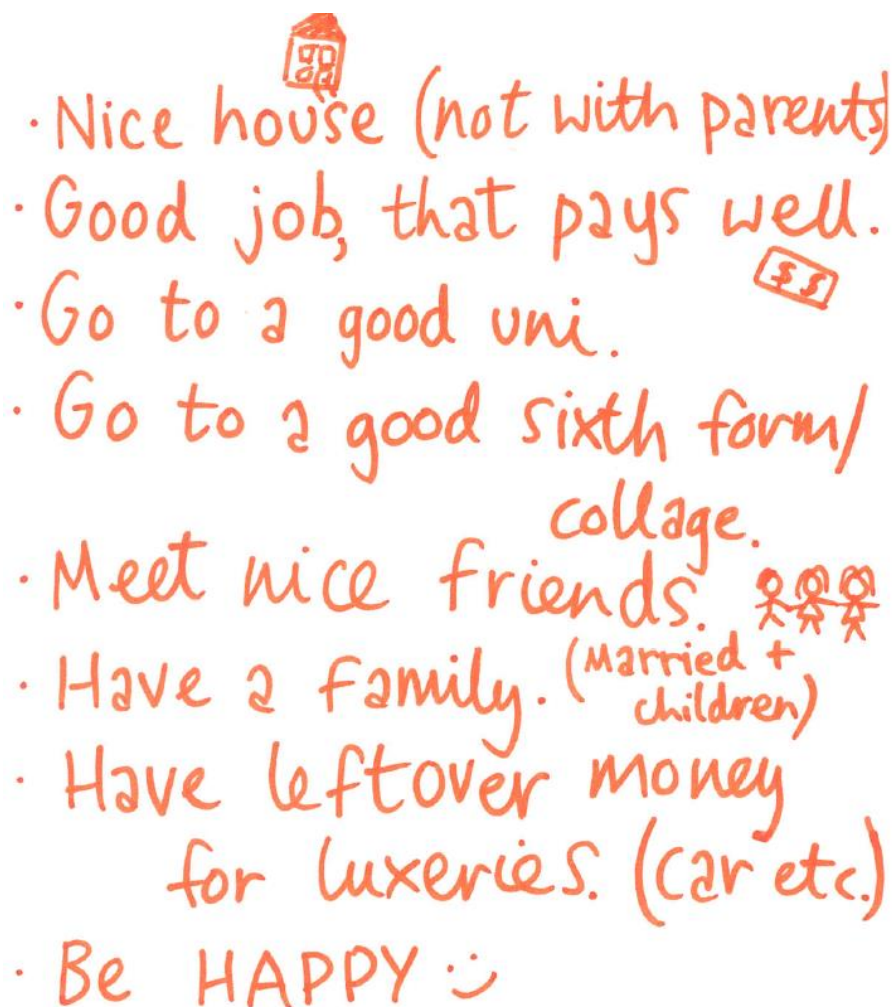 · Nice house (not with parents)
· Good job, that pays well.
$ $
· Go to a good uni.
· Go to a good sixth form/
collage.
· Meet nice friends.
· Have a family. (Married +
children)
· Have leftover money
for luxeries. (car etc.)
· Be HAPPY :)